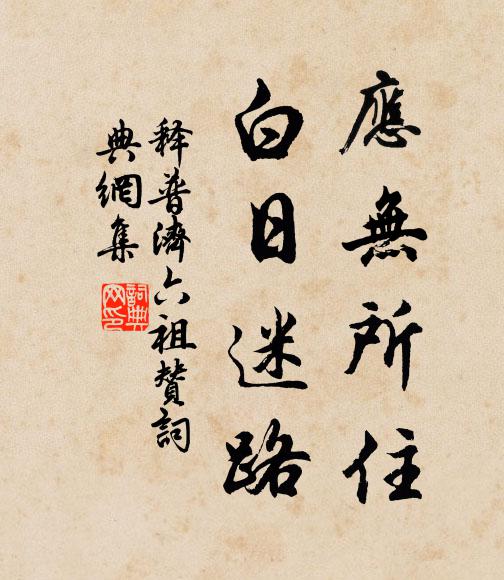 應無所住
白日迷路
释普濟六祖贊詞
典網集
詞典網印